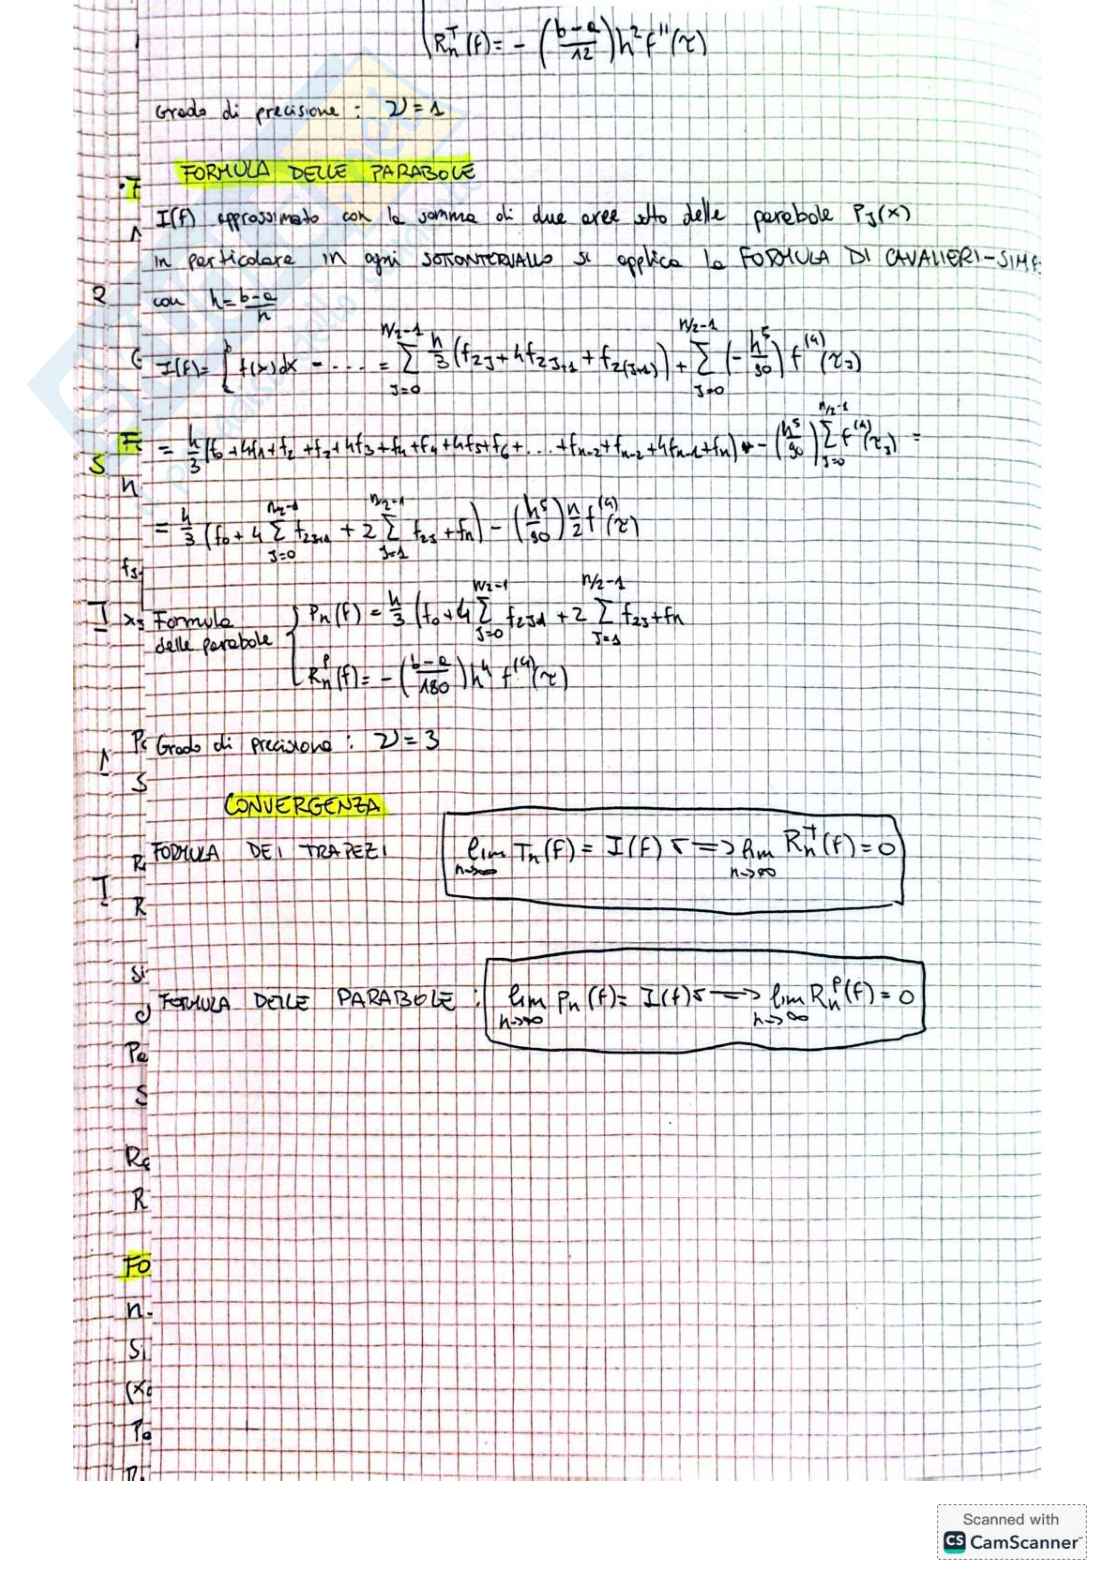 R_n^T(f) = - ((b-a)/12) h² f''(τ)
Grado di precisione : ν = 1
FORMULA DELLE PARABOLE
I(f) approssimato con la somma di due aree sotto delle parabole P_J(x)
in particolare in ogni SOTTOINTERVALLO si applica la FORMULA DI CAVALIERI-SIMP
con h = (b-a)/n
I(f) = ∫ f(x)dx - .... = Σ_{J=0}^{n/2-1} h/3 (f_{2J} + 4f_{2J+1} + f_{2(J+1)}) + Σ_{J=0}^{n/2-1} (- h⁵/90) f^{(4)}(τ_J)
= h/3 (f_0 + 4f_1 + f_2 + f_2 + 4f_3 + f_4 + f_4 + 4f_5 + f_6 + .... + f_{n-2} + f_{n-2} + 4f_{n-1} + f_n) - (h⁵/90) Σ_{J=0}^{n/2-1} f^{(4)}(τ_J) =
= h/3 (f_0 + 4 Σ_{J=0}^{n/2-1} f_{2J+1} + 2 Σ_{J=1}^{n/2-1} f_{2J} + f_n) - (h⁵/90) n/2 f^{(4)}(τ)
Formula delle parabole
P_n(f) = h/3 (f_0 + 4 Σ_{J=0}^{n/2-1} f_{2J+1} + 2 Σ_{J=1}^{n/2-1} f_{2J} + f_n
R_n^P(f) = - ((b-a)/180) h⁴ f^{(4)}(τ)
Grado di precisione : ν = 3
CONVERGENZA
FORMULA DEI TRAPEZI
lim_{n→∞} T_n(f) = I(f) ⟺ lim_{n→∞} R_n^T(f) = 0
FORMULA DELLE PARABOLE :
lim_{n→∞} P_n(f) = I(f) ⟺ lim_{n→∞} R_n^P(f) = 0
Scanned with
CS CamScanner